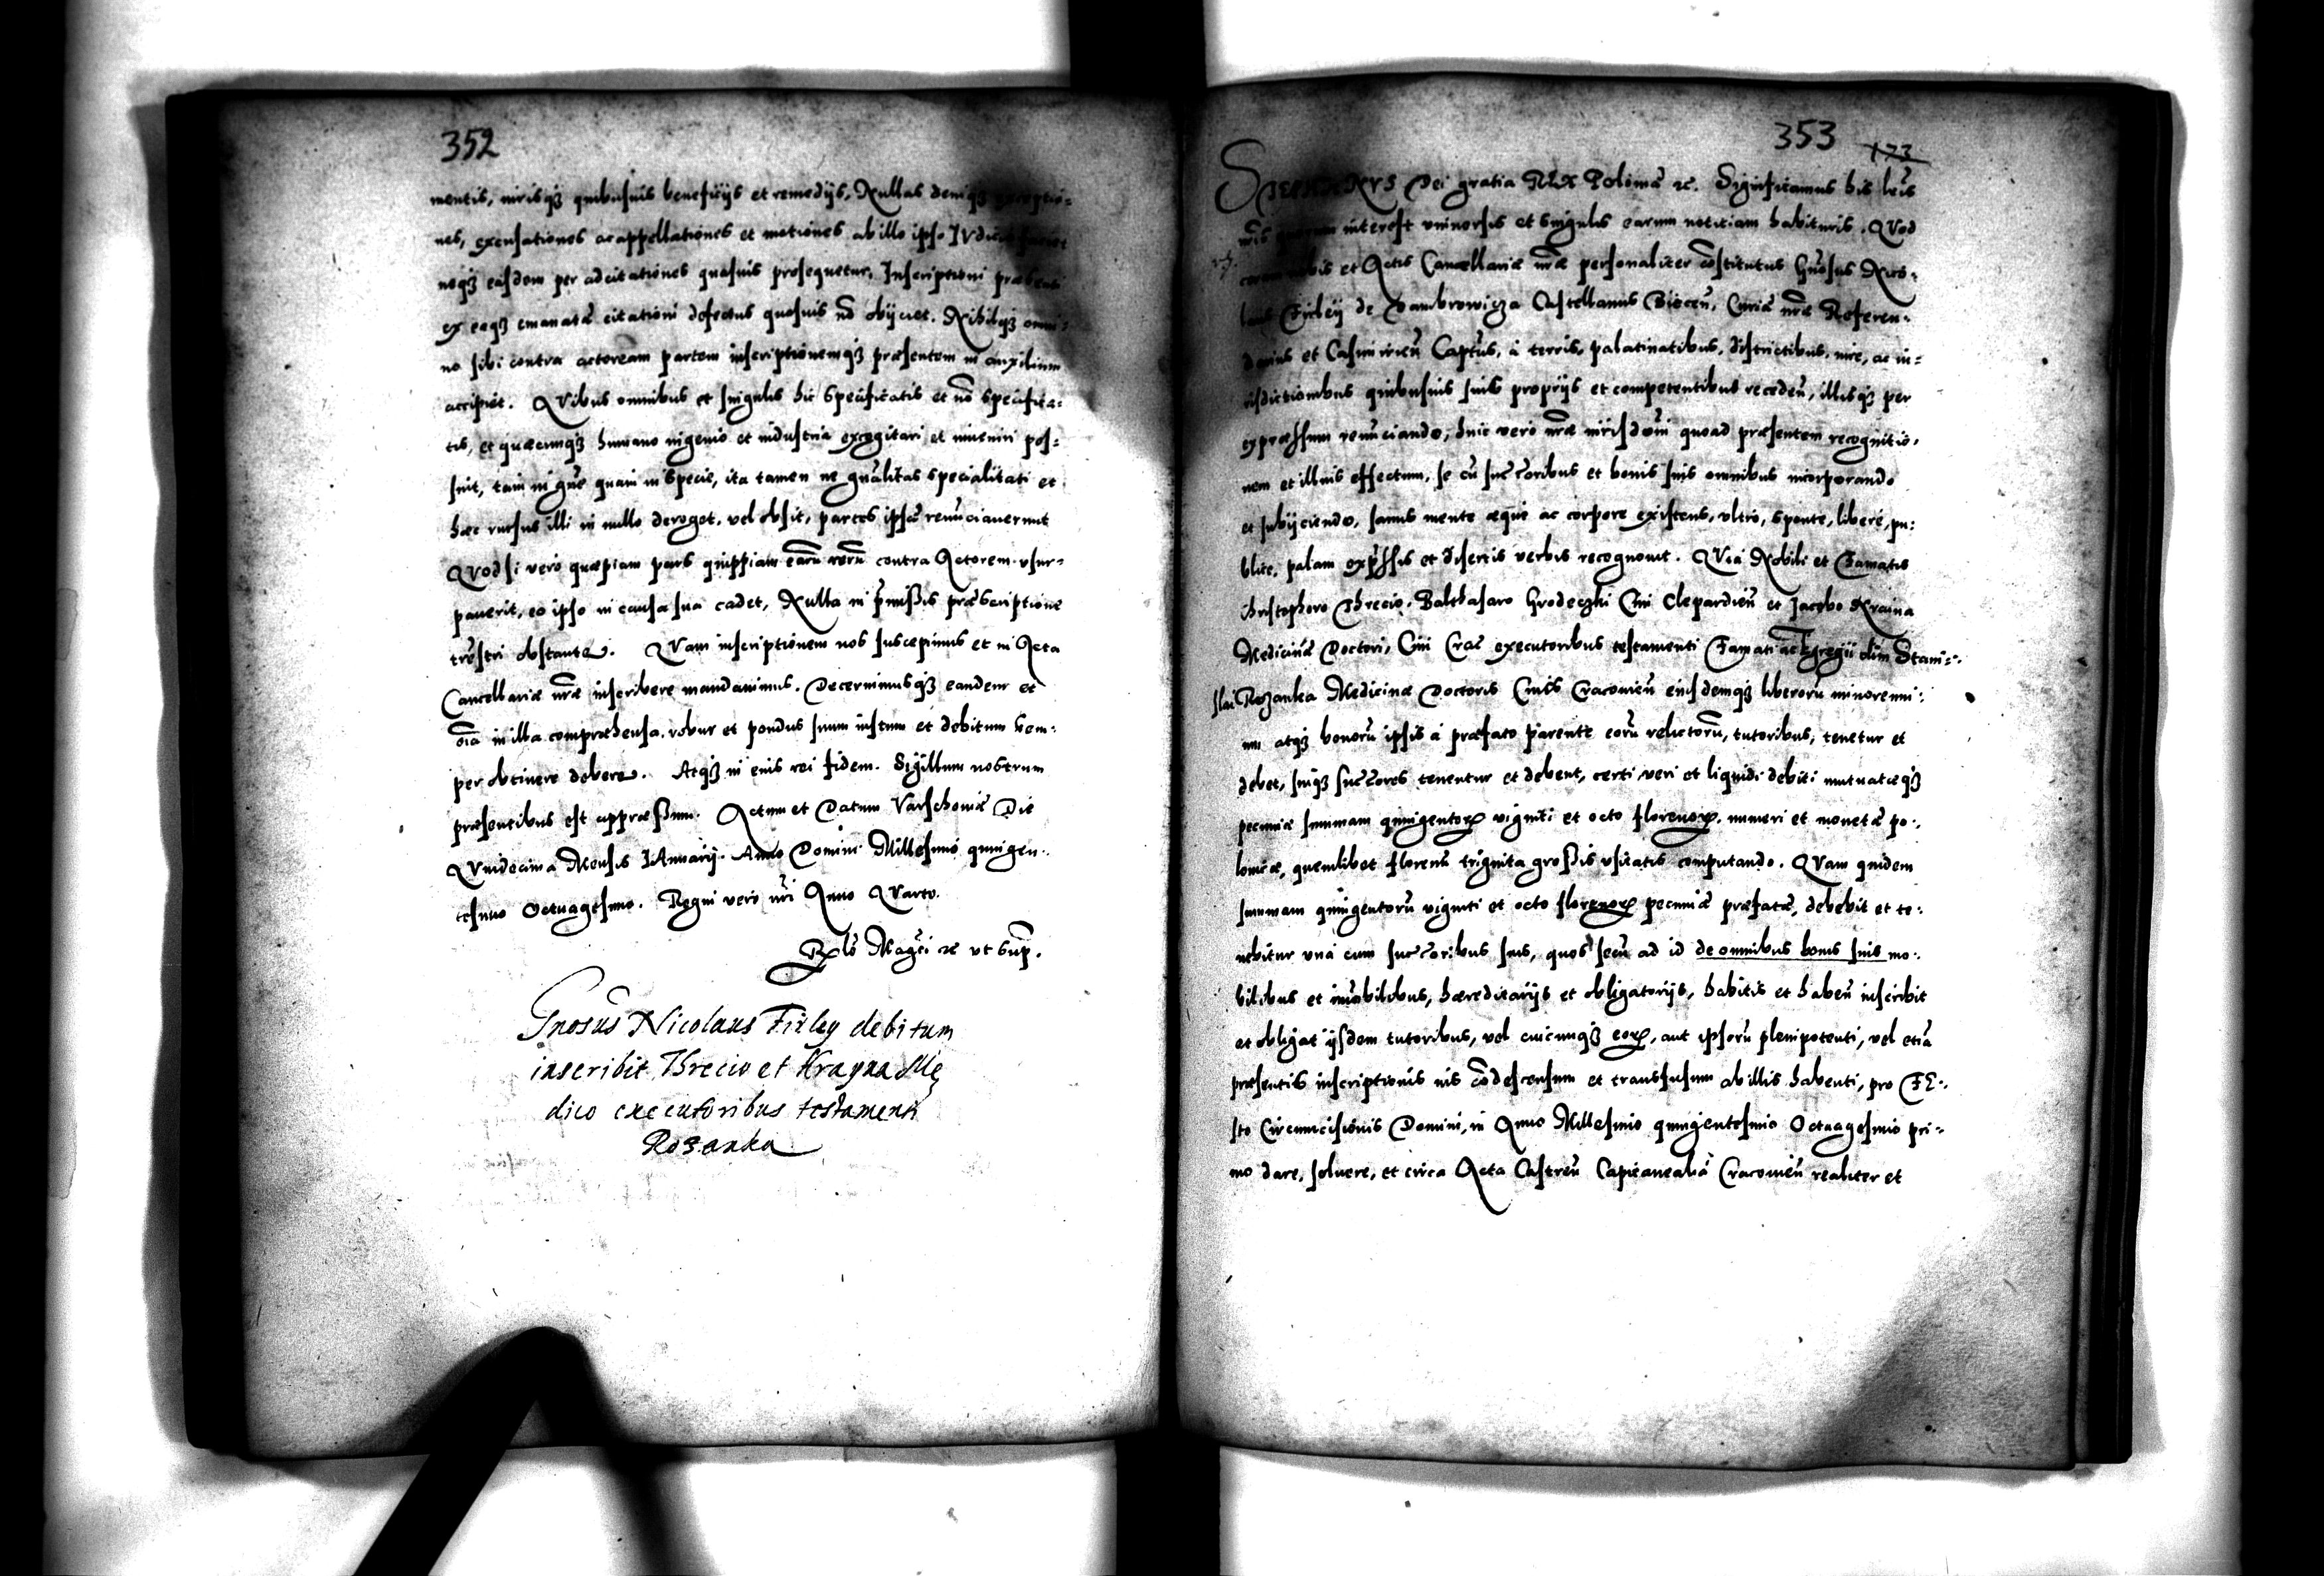 352
mentis, iurisq꜄ quibusuis beneficijs et remedijs, Nullas deniq꜄ exceptio=
nes, excusationes ac appellationes et motiones ab illo ipso IVdicio faciet
neq꜄ easdem per adcitationes quasuis prosequetur, Inscriptioni præsenti
ex eaq꜄ emanatæ citationi defectus quosuis nō obijciet. Nihilq꜄ omni=
no sibi contra actoream partem inscriptionemq꜄ præsentem in auxilium
accipiet. QVibus omnibus et singulis hic specificatis et nō specifica=
tis, et quæcunq꜄ humano ingenio et industria excogitari et inueniri pos=
sint, tam in gñe quam in specie, ita tamen ne gñalitas specialitati et
hæc rursus illi in nullo deroget, vel obsit, partes ipsæ renunciauerunt
QVodsi vero quæpiam pars quippiam earū rerū contra Actorem vsur=
pauerit, eo ipso in causa sua cadet, Nulla in p̄missis præscriptione
tr̄estri obstante. QVam inscriptionem nos suscepimus et in Acta
Cancellariæ nr̄æ inscribere mandauimus. Decernimusq꜄ eandem et
oīa in illa compræhensa, robur et pondus suum iustum et debitum sem=
per obtinere debere. Atq꜄ in eius rei fidem. Sigillum nostrum
præsentibus est appræssum. Actum et Datum Varschouiæ Die
QVindecima Mensis IAnuarij. Anno Domini Millesimo quingen=
tesimo Octuagesimo. Regni vero nr̄i Anno QVarto.
Rlō Magci ꝛc vt sup̄.
Gnosus Nicolaus Firley debitum
inscribit Threcio et Krayna Me
dico executoribus testamenti
Rozanka
353 173
STEPHANVS Dei gratia REX Poloniæ ꝛc. Significamus his lr̄is
nr̄is quorum interest vniuersis et singulis earum notitiam habituris. QVod
coram nobis et Actis Cancellariæ nr̄æ personaliter cōstitutus Gn̄osus Nico=
laus Firley de Dambrowicza Castellanus Biecēn, Curiæ nr̄æ Referen=
darius et Casimiriēn Captus, à terris, palatinatibus, districtibus, iure, ac iu=
risdictionibus quibusuis suis proprijs et competentibus recedēn, illisq꜄ per
expræssum renunciando, huic vero nr̄æ iurisdōni quoad præsentem recognitio=
nem et illius effectum, se cū succōribus et bonis suis omnibus incorporando
et subijciendo, sanus mente æque ac corpore existens, vltro, sponte, libere, pu=
blice, palam exp̄ssis et disertis verbis recognouit. QVia Nobili et Famatis
Christophoro Threcio, Balthasaro Grodeczki Ciui Clepardiēn et Jacobo Kraina
Medicinæ Doctori, Ciui Crac̄ executoribus testamenti Famati ac Egregii olim Stani=
slai Rozanka Medicinæ Doctoris Ciuis Cracouiēn eiusdemq꜄ liberorū minorenni=
um atq꜄ bonorū ipsis à præfato parente eorū relictorū, tutoribus, tenetur et
debet, suiq꜄ succōres tenentur et debent, certi veri et liquidi debiti mutuatæq꜄
pecuniæ summam quingentorꝝ viginti et octo florenorꝝ, numeri et monetæ po=
lonicæ, quemlibet florenū triginta grossis vsitatis computando. QVam quidem
summam quingentorū viginti et octo florenorꝝ pecuniæ præfatæ, debebit et te=
nebitur vna cum succōribus suis, quos secū ad id de omnibus bonis suis mo=
bilibus et imōbilibus, hæreditarijs et obligatorijs, habitis et habēn inscribit
et obligat ijsdem tutoribus, vel cuicunq꜄ eorꝝ, aut ipsorū plenipotenti, vel etiā
præsentis inscriptionis ius cōdescensum et transfusum ab illis habenti, pro FE=
sto Circumcisionis Domini, in Anno Millesimo quingentesimo Octuagesimo pri=
mo dare, soluere, et circa Acta Castrēn Capitanealiā Cracouiēn realiter et